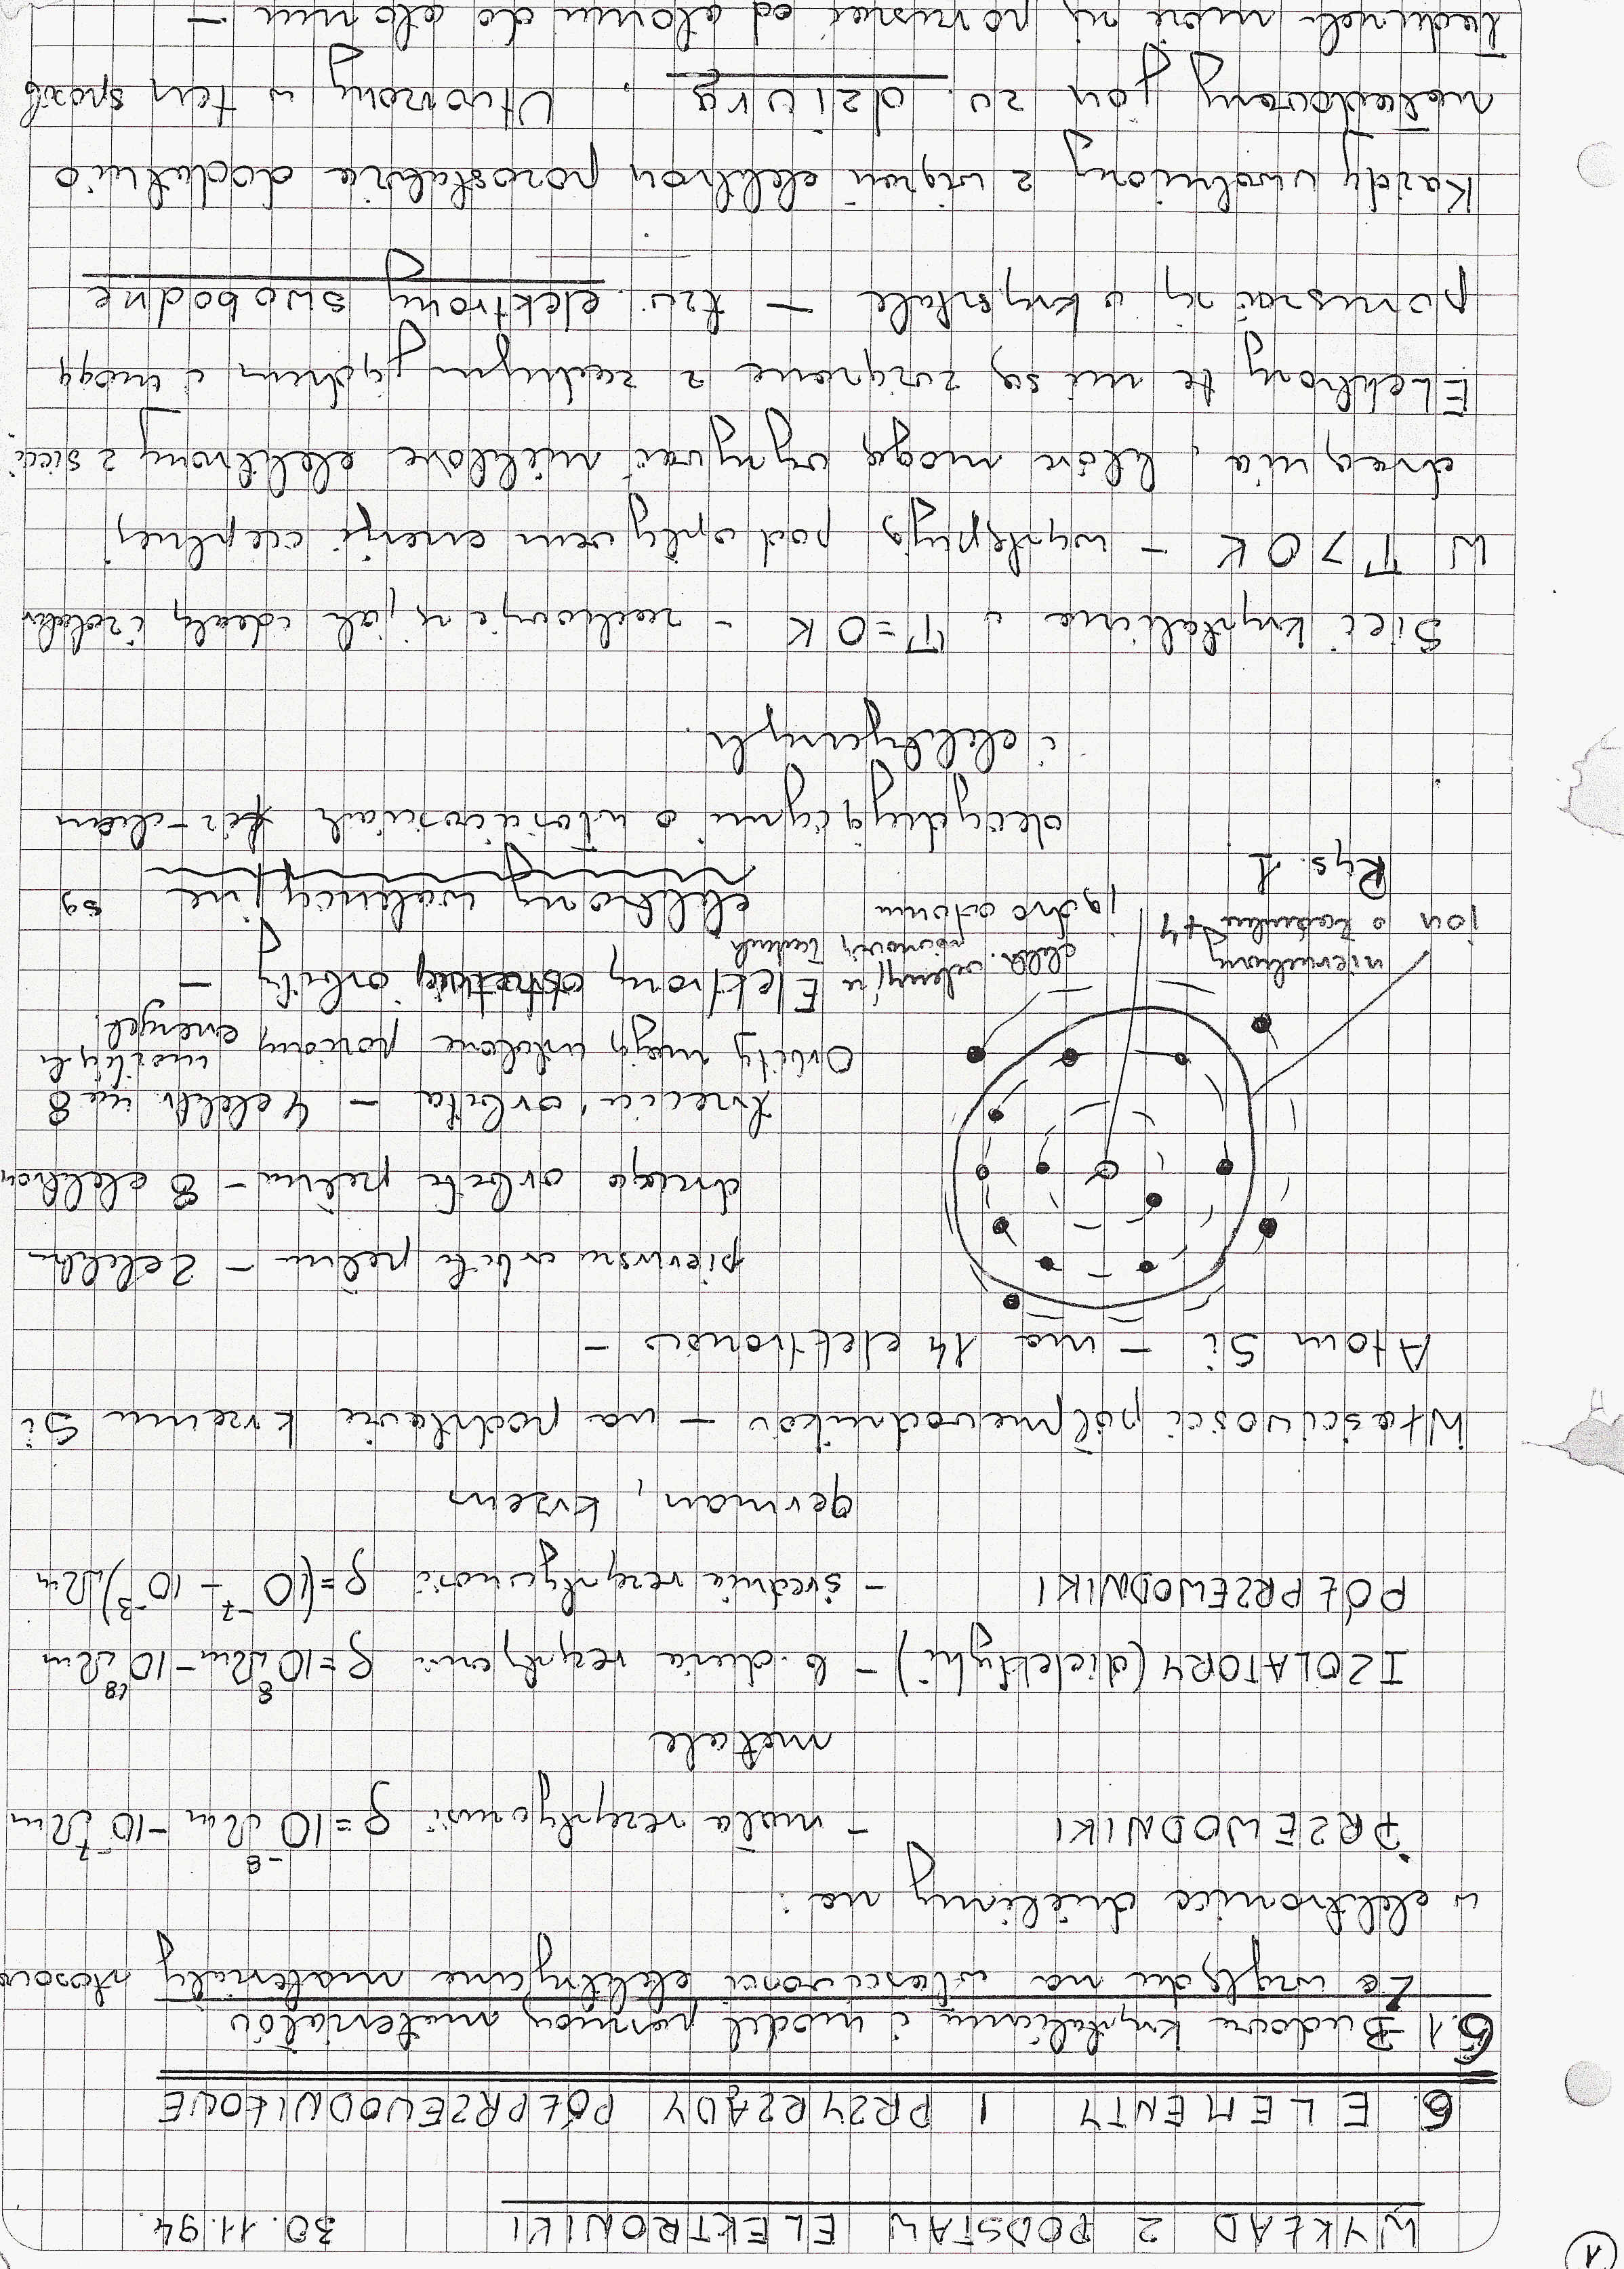 1
WYKŁAD Z PODSTAW ELEKTRONIKI 30.11.94.
6. ELEMENTY I PRZYRZĄDY PÓŁPRZEWODNIKOWE
6.1 Budowa krystaliczna i model pasmowy materiałów
Ze względu na własciwości elektryczne materiały stosowane
w elektronice dzielimy na:
PRZEWODNIKI - mała rezystywność ρ=10⁻⁸Ωm - 10⁻⁷Ωm
metale
IZOLATORY (dielektryki) - b. duża rezystywność ρ=10⁸Ωm - 10¹⁸Ωm
PÓŁPRZEWODNIKI - średnia rezystywność ρ=(10⁻⁷ - 10⁻³)Ωm
german, krzem
Własciwości półprzewodników - na podstawie krzemu Si
Atom Si - ma 14 elektronów -
pierwsza orbita pełna - 2 elektr
druga orbita pełna - 8 elektronów
trzecia orbita - 4 elektr. na 8
możliwych
Orbity mają określone poziomy energet.
Elektrony ostatniej orbity -
elektrony walencyjne są
decydującymi o własciwościach fiz-chem
i elektrycznych.
elektr. walencyjne
jądro atomu
nieruchomy
jon o ładunku +4
Rys. 1
Sieć krystaliczna w T=0K - zachowuje się jak idealny izolator
W T>0K - występują pod wpływem energii cieplnej
drgania, które mogą wyrywać niektóre elektrony z sieci
Elektrony te nie są związane z żadnym jądrem i mogą
poruszać się w krysztale - tzw. elektrony swobodne
Każdy uwolniony z wiązań elektron pozostawia dodatnio
naładowany jon zw. dziurą. Utworzony w ten sposób
ładunek może się poruszać od atomu do atomu -